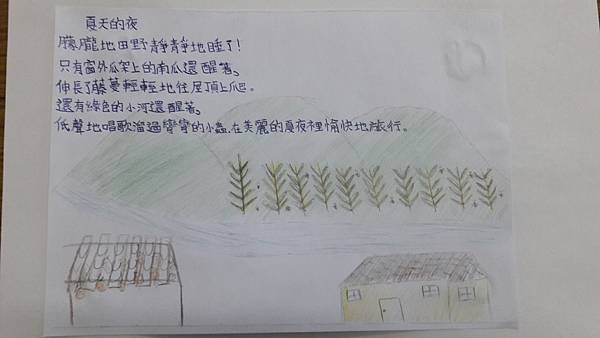 夏天的夜
朦朧地田野靜靜地睡了!
只有窗外瓜架上的南瓜還醒著。
伸長了藤蔓輕輕地往屋頂上爬。
還有綠色的小河還醒著。
低聲地唱歌溜過彎彎的小蟲,在美麗的夏夜裡愉快地旅行。